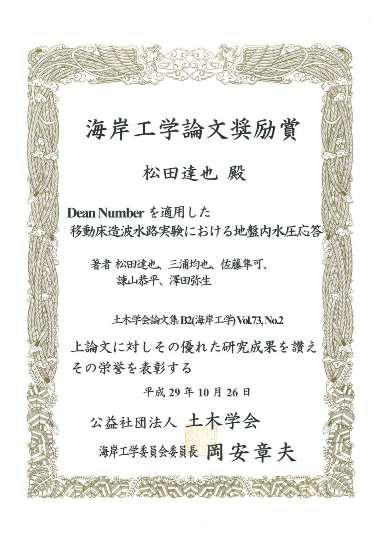 海岸工学論文奨励賞
松田達也 殿
Dean Number を適用した
移動床造波水路実験における地盤内水圧応答
著者 松田達也、三浦均也、佐藤隼可、
諫山恭平、澤田弥生
土木学会論文集B2(海岸工学) Vol.73, No.2
上論文に対しその優れた研究成果を讃え
その栄誉を表彰する
平成 29 年 10 月 26 日
公益社団法人 土木学会
海岸工学委員会委員長 岡安章夫